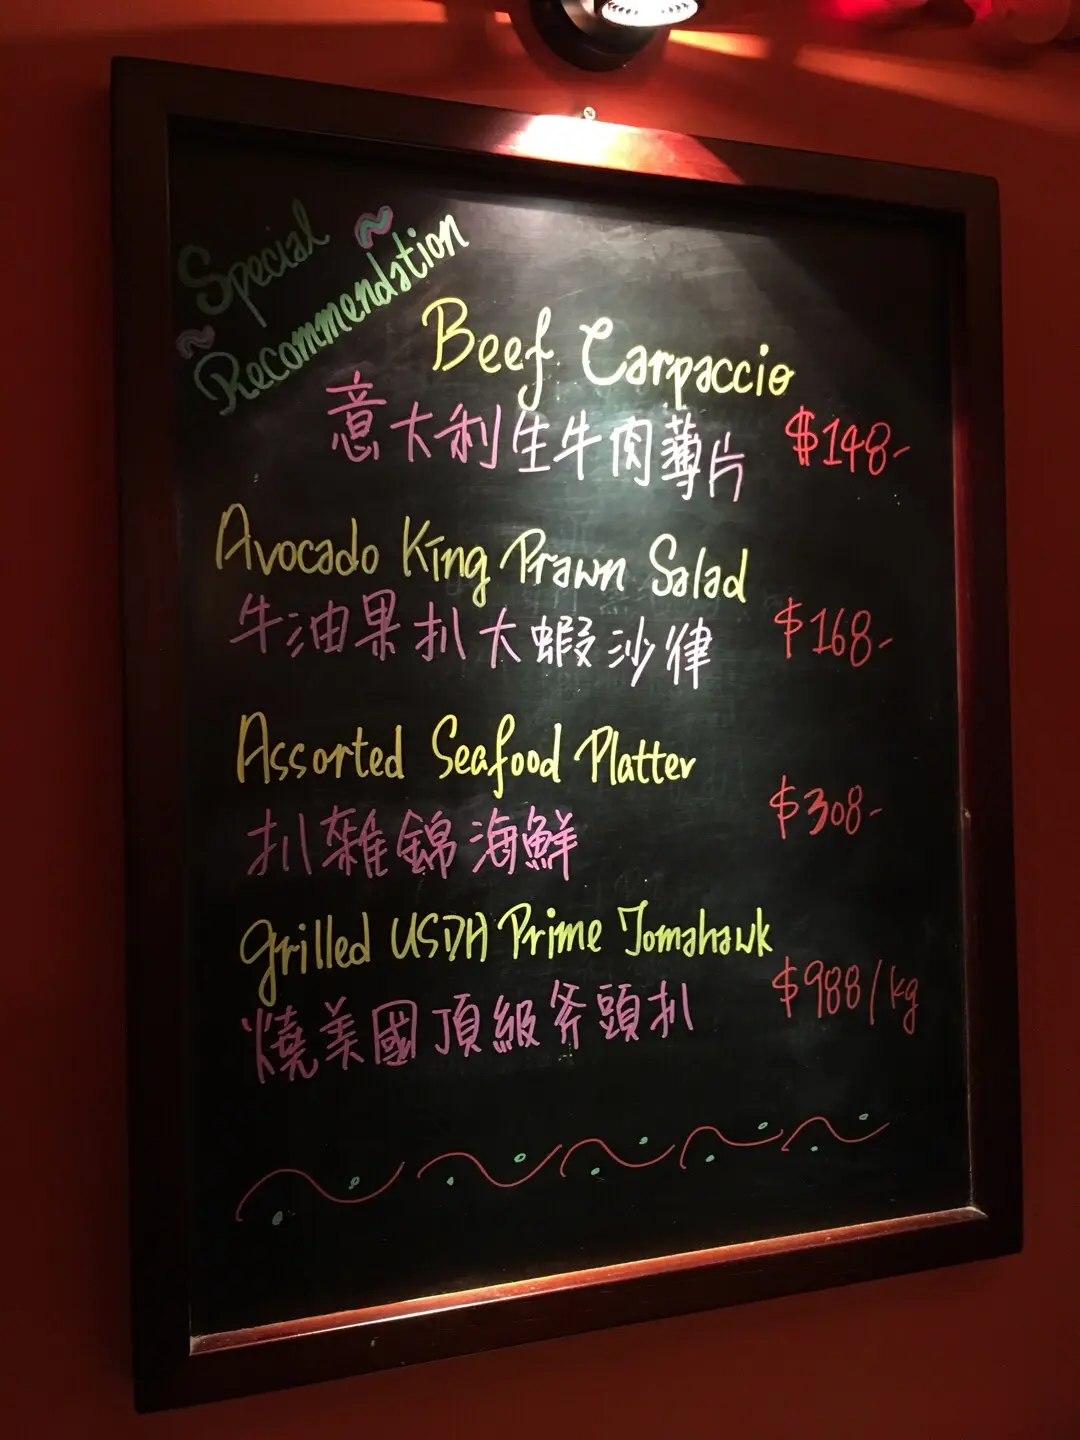 Special
Recommendation
Beef Carpaccio
意大利生牛肉薄片 $148-
Avocado King Prawn Salad
牛油果扒大蝦沙律 $168-
Assorted Seafood Platter
扒雜錦海鮮 $308-
Grilled USDA Prime Tomahawk
燒美國頂級斧頭扒 $988/kg